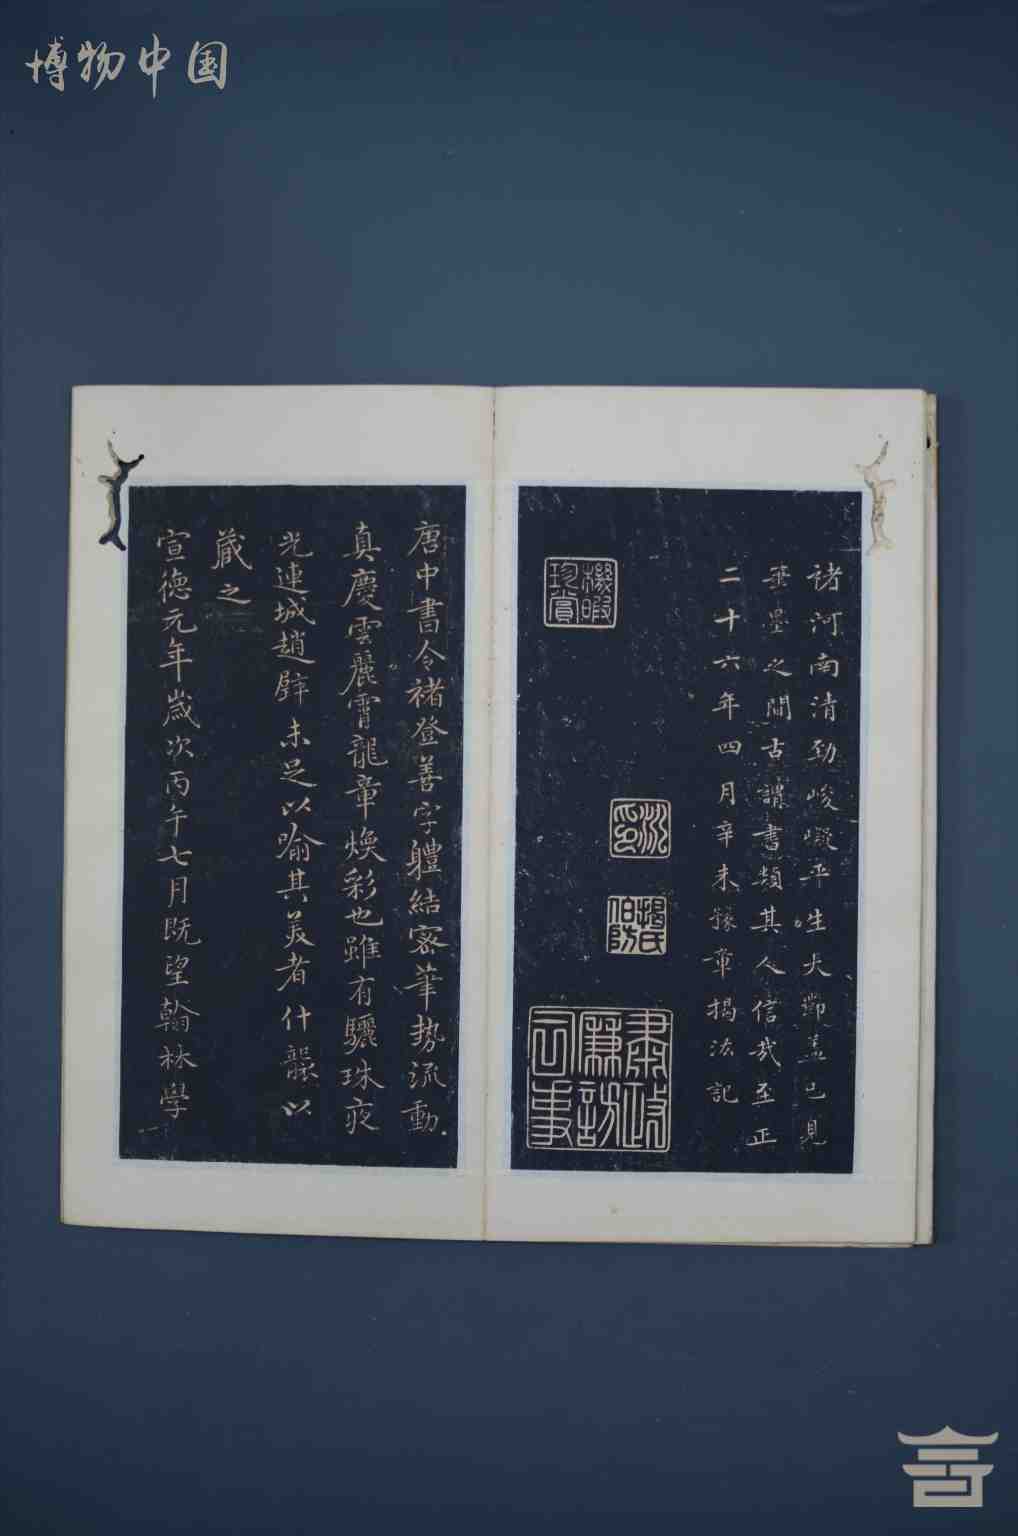 博物中国
褚河南清劲峻嶷平生大節蓋已見
筆墨之間古謂書類其人信哉至正
二十六年四月辛未豫章揭汯記
機暇珍賞
汯印
揭氏伯防
肅政廉訪司事
唐中書令褚登善字體結密筆勢流動
真慶雲麗霄龍章煥彩也雖有驪珠夜
光連城趙璧未足以喻其美者什襲以
藏之
宣德元年歲次丙午七月既望翰林學